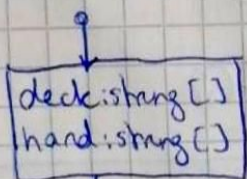 deck:string[]
hand:string[]